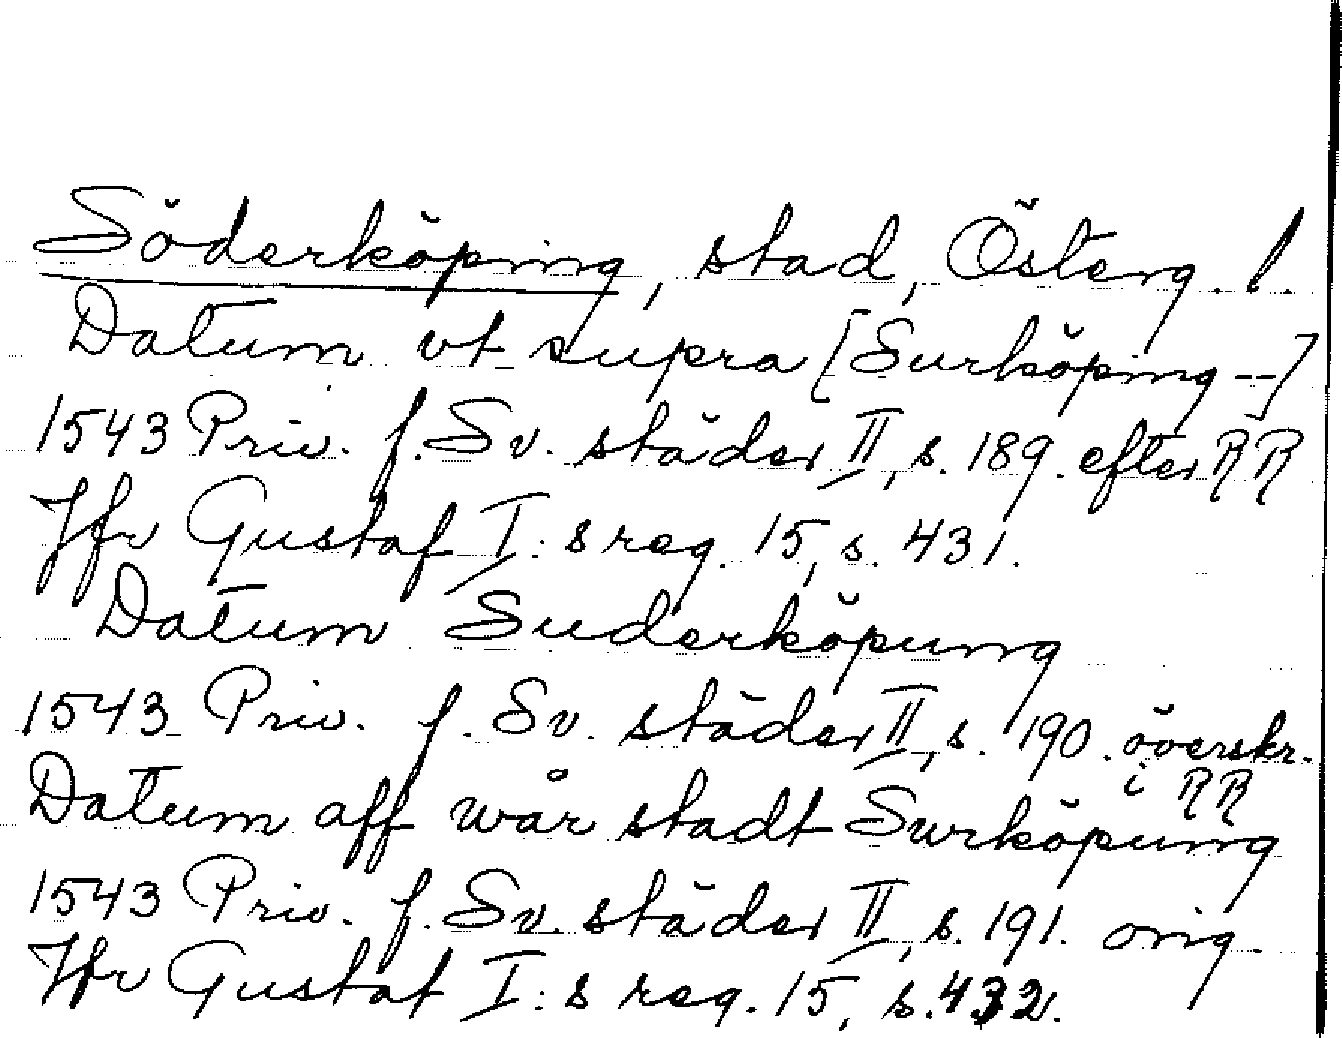 Söderköping, stad, Österg. l.
Datum vt supra [Surköping --]
1543 Priv. f. Sv. städer II, s. 189. efter RR
Jfr Gustaf I:s reg. 15, s. 431.
Datum Suderköpung
1543 Priv. f. Sv. städer II, s. 190. överskr.
i RR
Datum aff wår stadt Surköpung
1543 Priv. f. Sv. städer II, s. 191. orig.
Jfr Gustaf I:s reg. 15, s. 432.